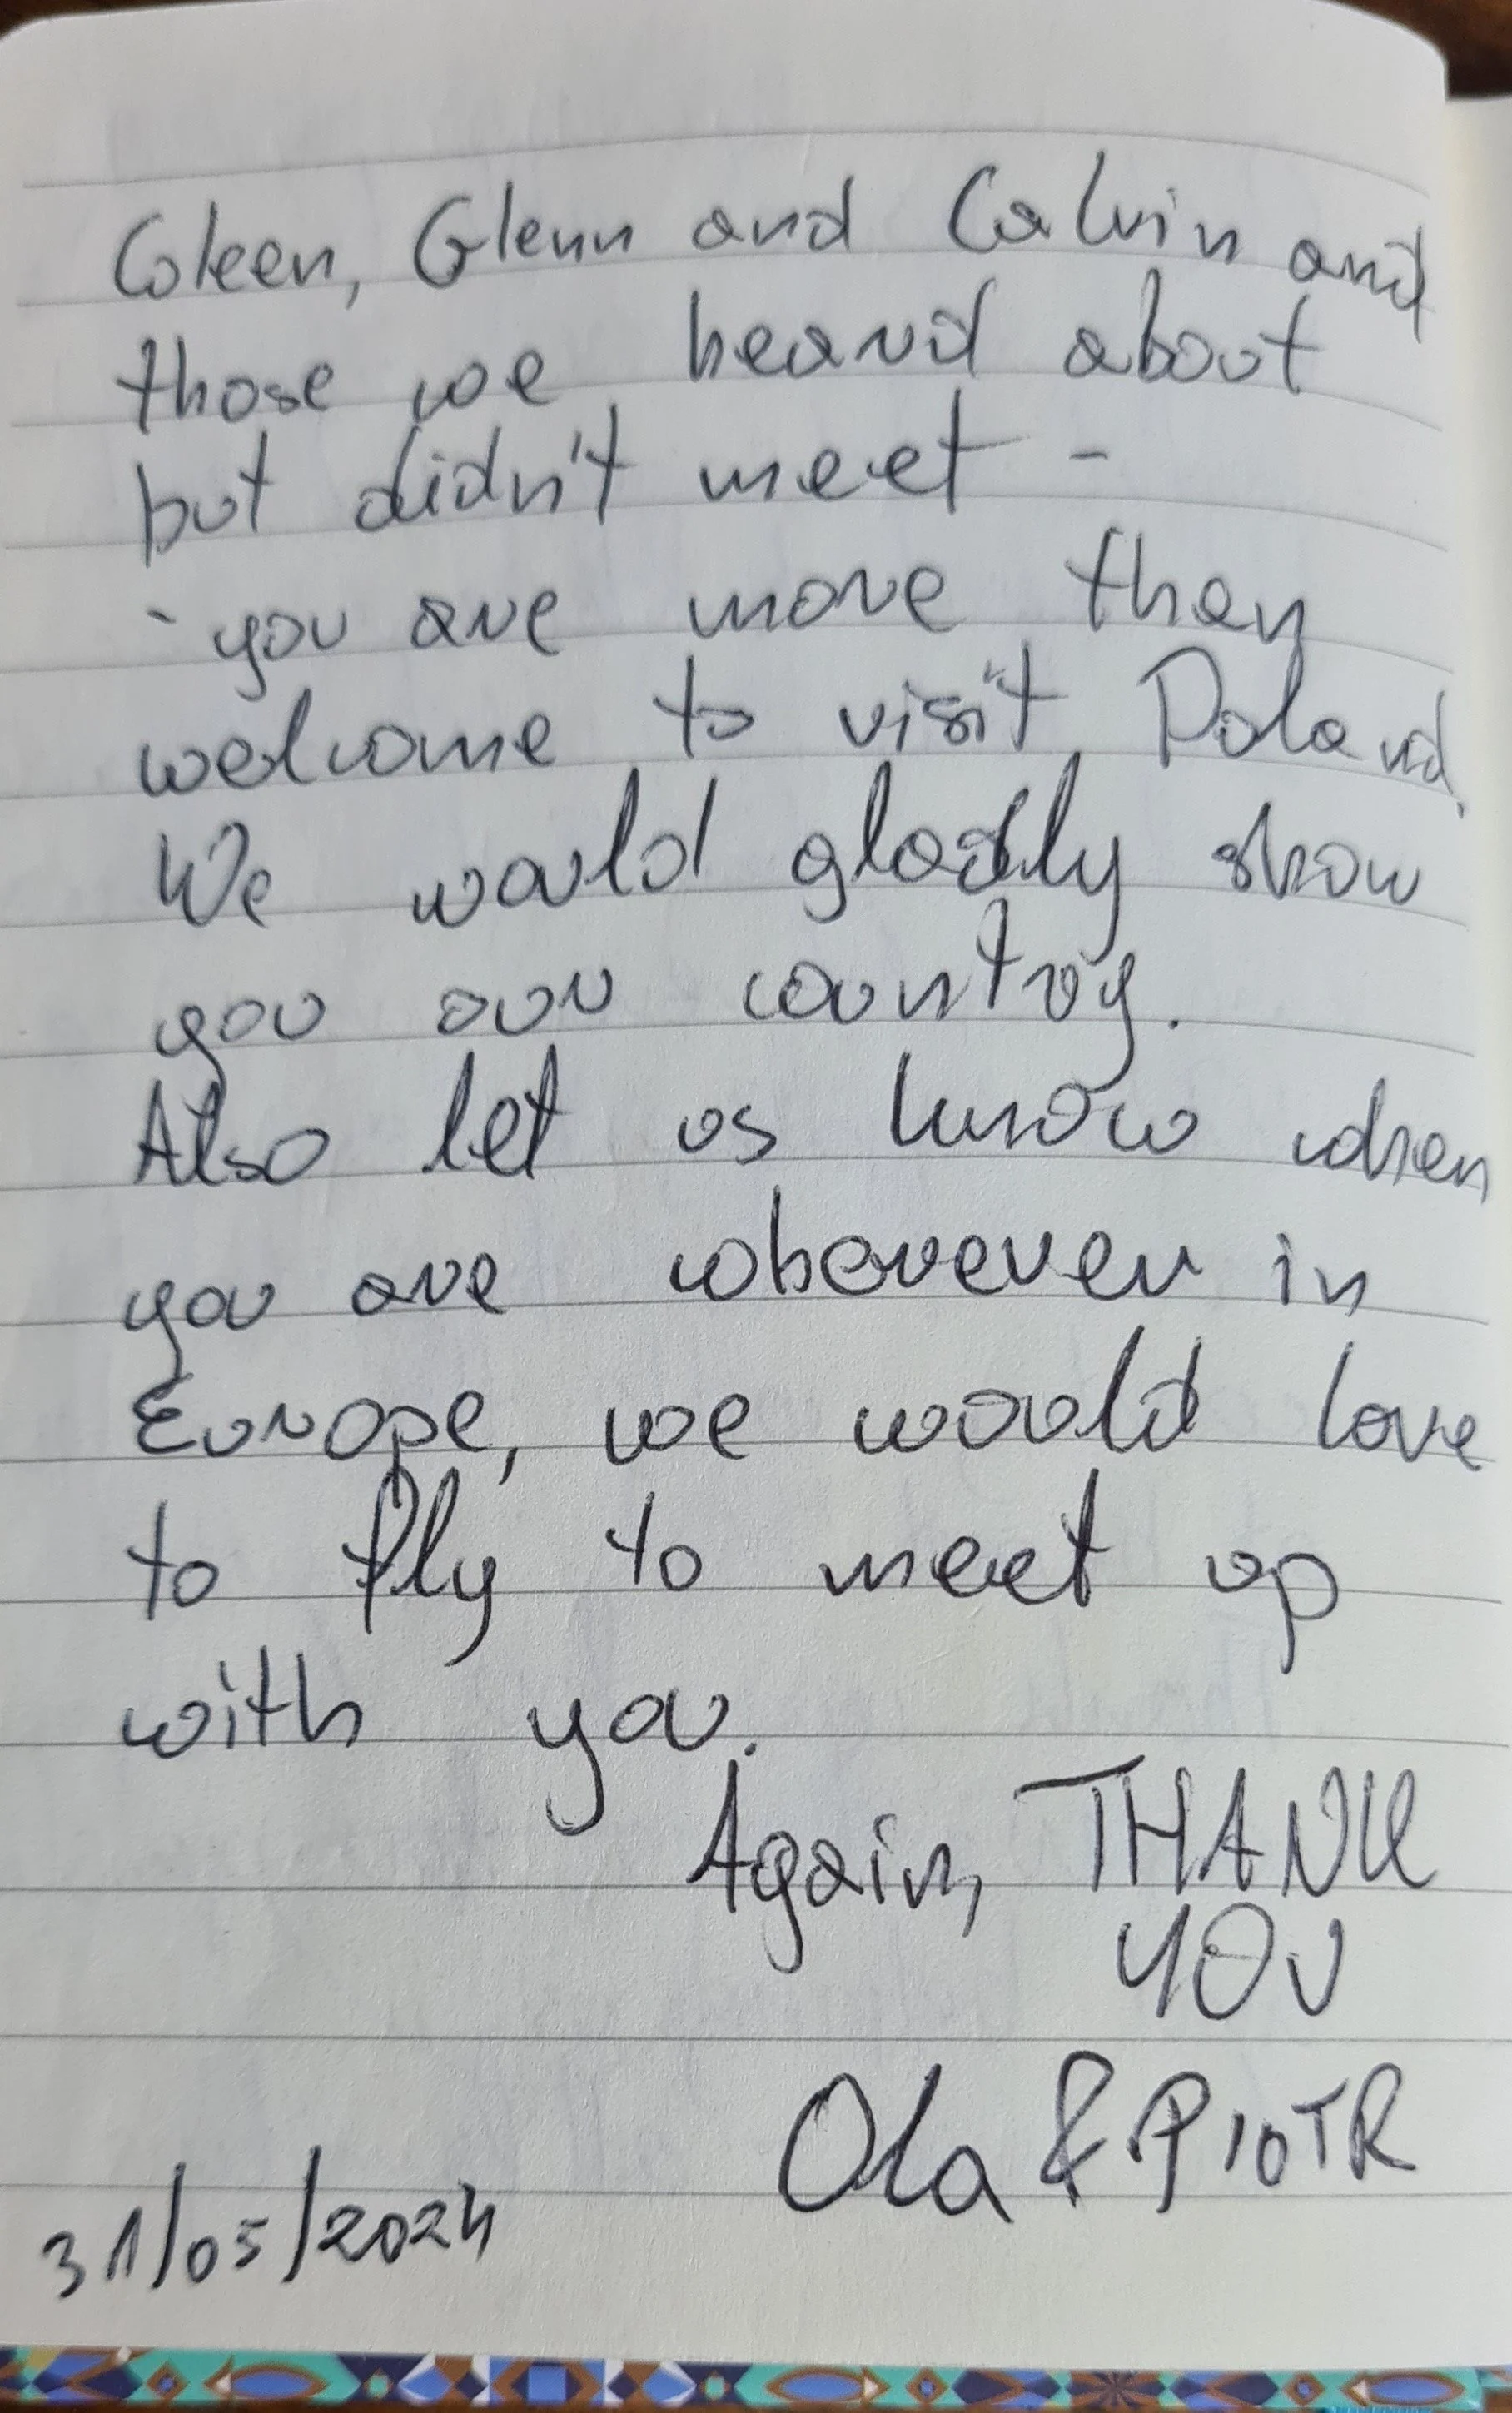 Coleen, Glenn and Calvin and
those we heard about
but didn't meet -
- you are more then
welcome to visit Poland.
We would gladly show
you our country.
Also let us know when
you are wherever in
Europe, we would love
to fly to meet up
with you.
Again, THANK
YOU
Ola & PIOTR
31/05/2024